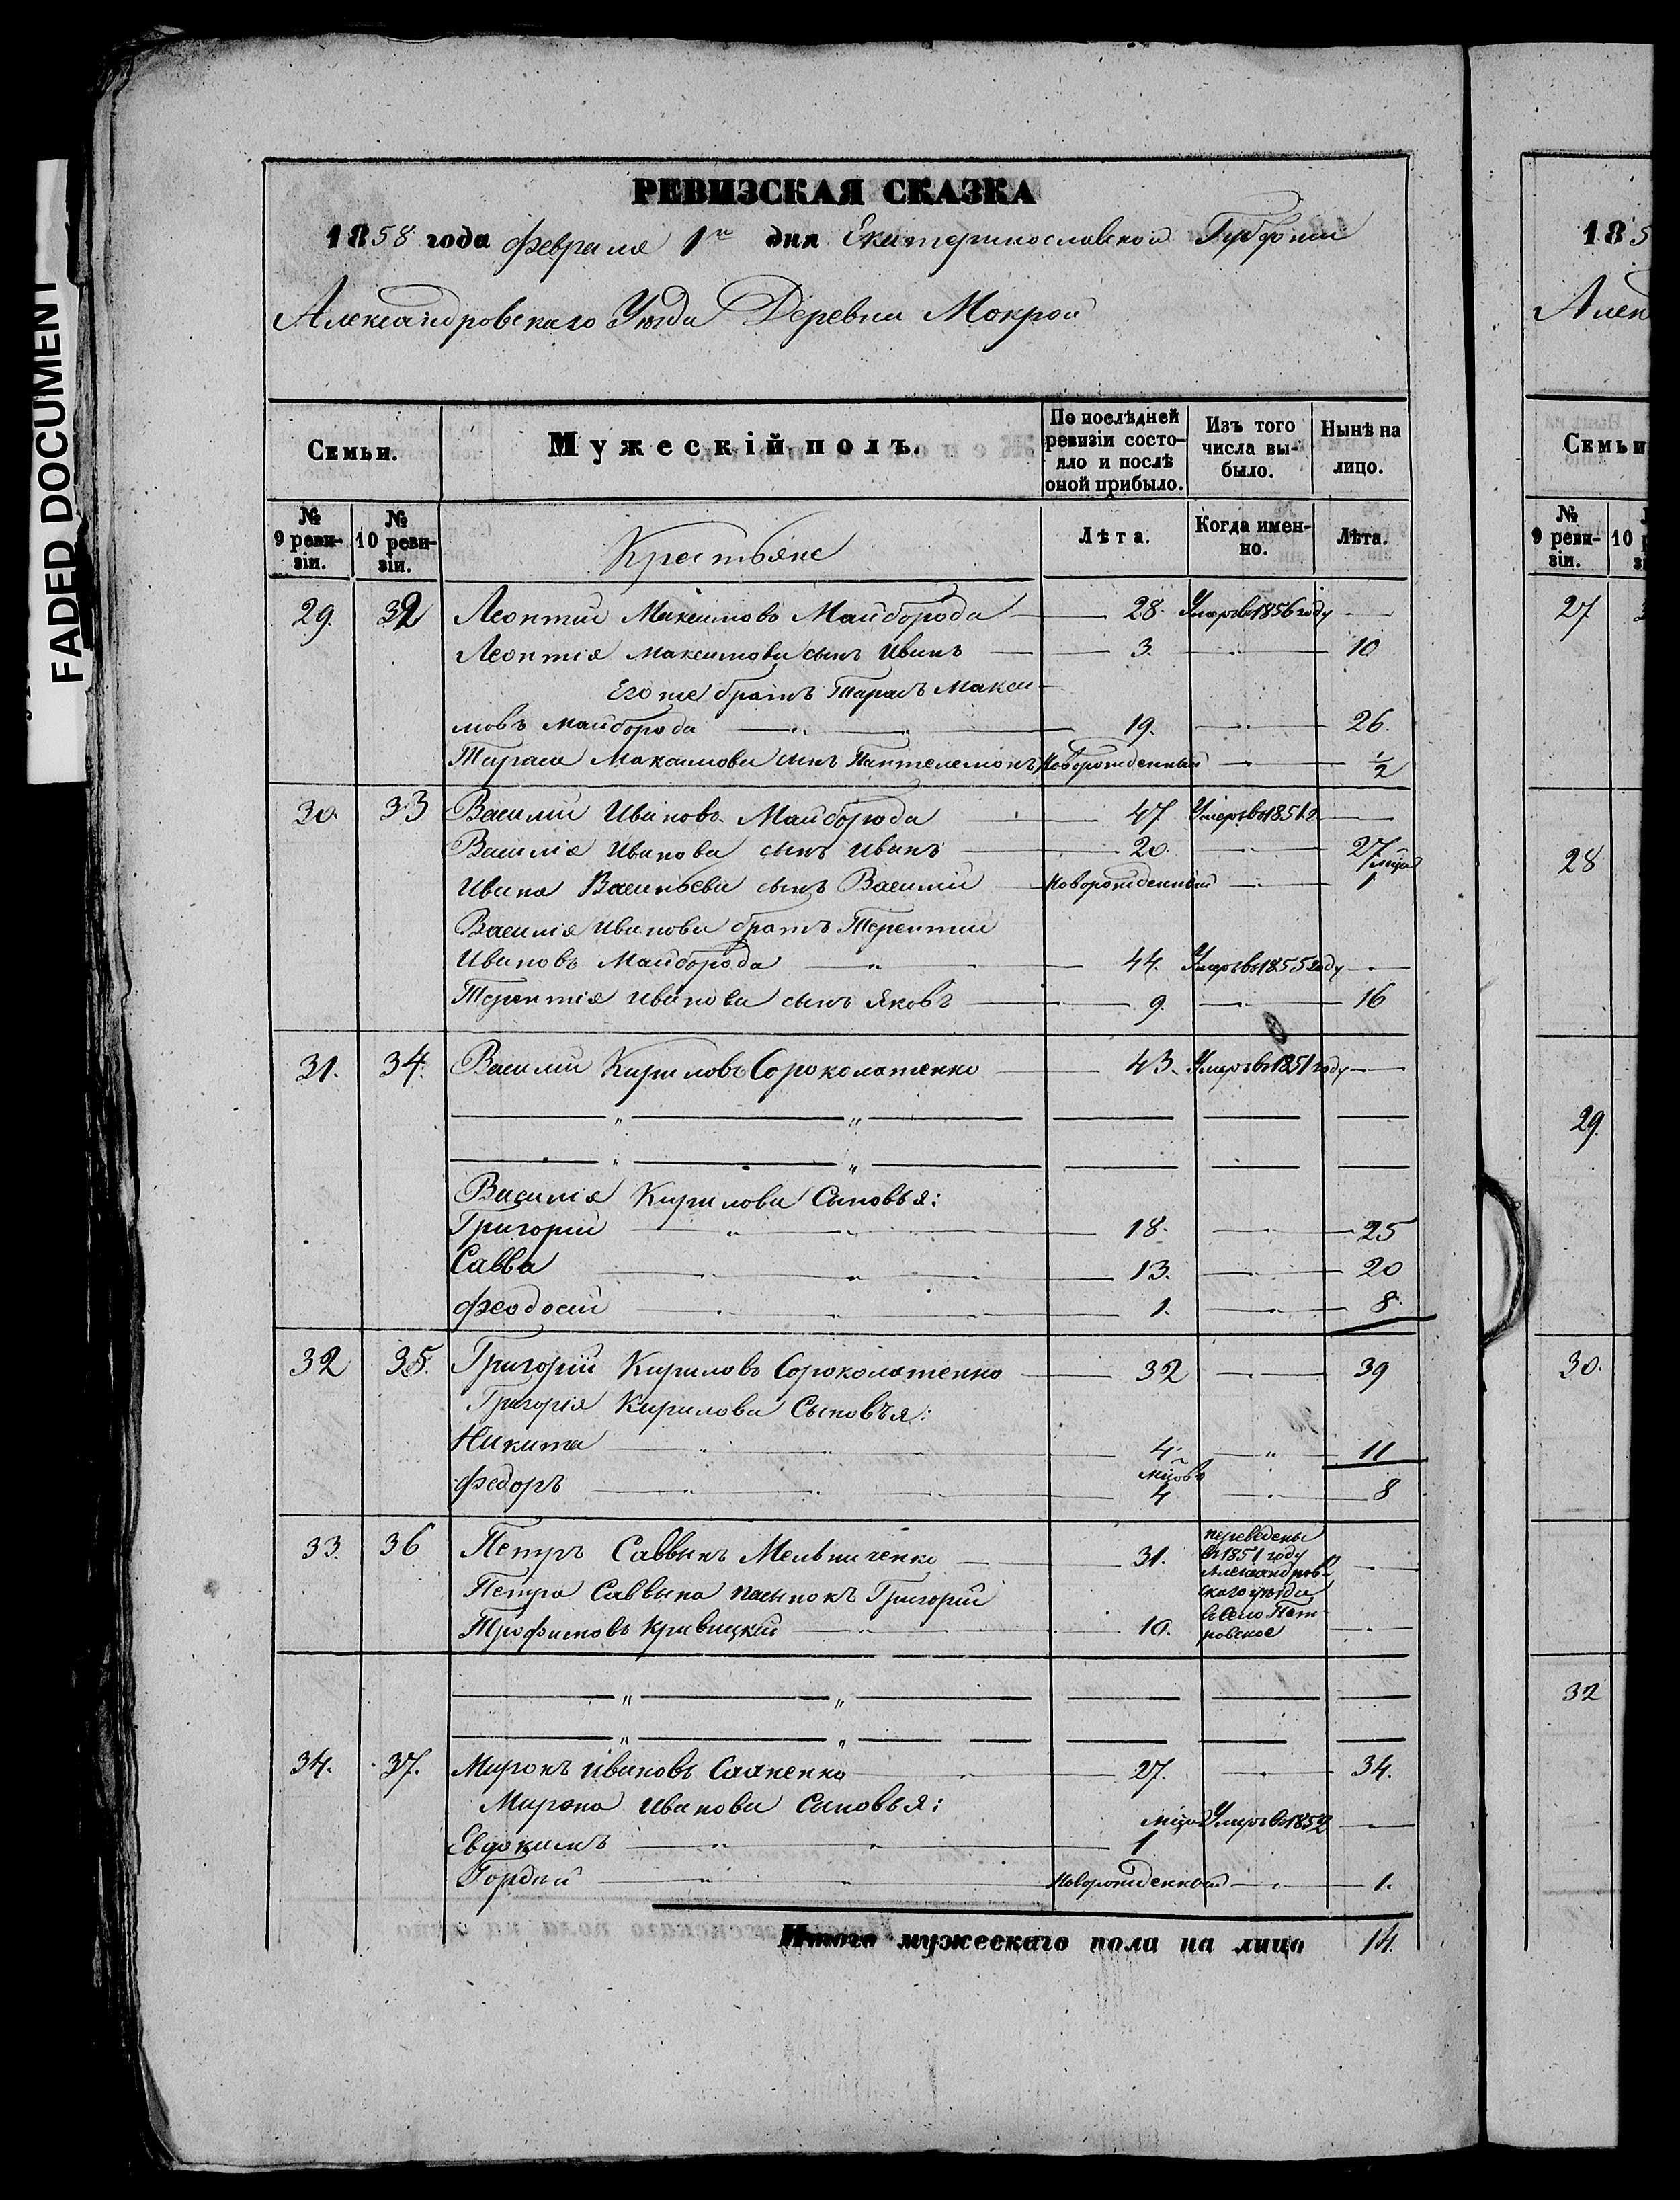 FADED DOCUMENT
РЕВИЗСКАЯ СКАЗКА
1858 года февраля 1го дня Екатеринославской Губерніи
Александровскаго Уѣзда Деревни Мокрой
Семьи.
Мужескій полъ.
По послѣдней ревизіи состояло и послѣ оной прибыло.
Изъ того числа выбыло.
Нынѣ на лицо.
№ 9 ревизіи.
№ 10 ревизіи.
Крестьяне
Лѣта.
Когда именно.
Лѣта.
29. 32 Леонтий Максимовъ Майборода 28. Умеръ в 1856 году
Леонтія Максимова сынъ Иванъ 3. 10
Его же братъ Тарасъ Макси-
мовъ Майборода 19. 26.
Тараса Максимова сынъ Пантелемонъ Новорожденный 1/2
30. 33 Василий Ивановъ Майборода 47 Умеръ в 1851 г
Василія Иванова сынъ Иванъ 20. 27
Ивана Васильева сынъ Василій Новорожденный мцъ 1
Василія Иванова братъ Терентий
Ивановъ Майборода 44. Умеръ в 1855 году
Терентія Иванова сынъ Яковъ 9. 16
31. 34. Василий Кириловъ Сороколатенко 43. Умеръ в 1851 году
Василія Кирилова Сыновья:
Григорий 18. 25
Савва 13. 20
Феодосий 1. 8.
32 35. Григорій Кириловъ Сороколатенко 32 39
Григорія Кирилова Сыновъя:
Никита 4. 11
Федоръ мцовъ 4 8
33. 36 Петръ Саввинъ Мельниченко 31. переведены
въ 1851 году
Александров-
скаго уѣзда
Петра Саввина пасынокъ Григорій
в село Пет-
Трофимовъ Кривицкий 10. ровское
34. 37. Миронъ Ивановъ Сааненко 27. 34.
Мирона Иванова Сыновья:
Евдокимъ мцъ 1 Умеръ в 1852
Гордѣй Новорожденный 1.
Итого мужескаго пола на лицо 14.
185
Алек
Семьи
№ 9 ревизіи.
10
27
28
29.
30.
32